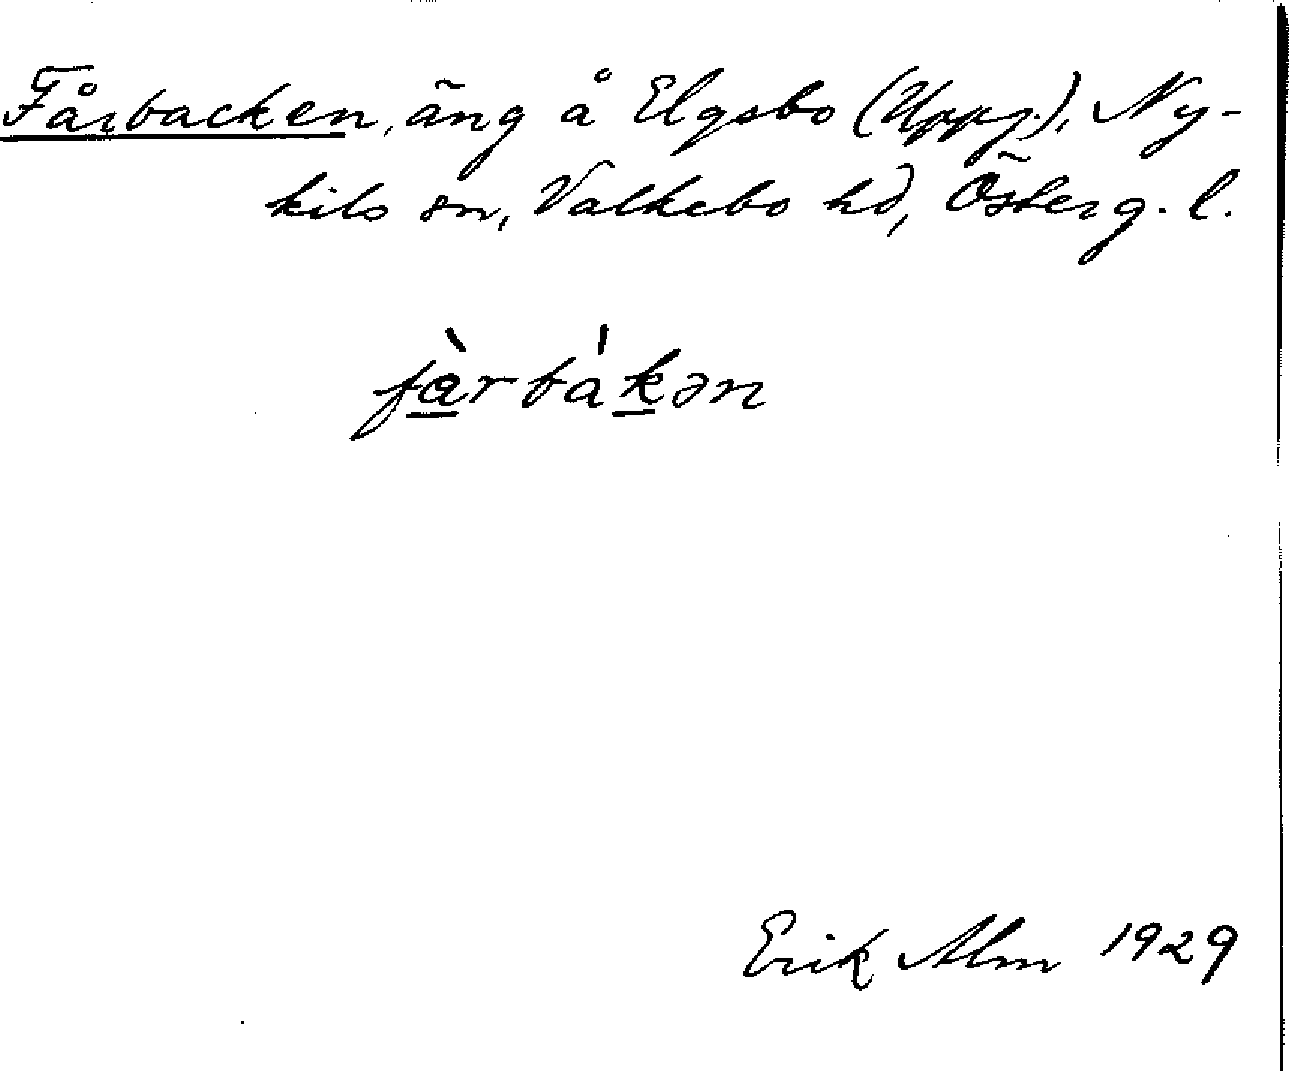 Fårbacken, äng å Elgsbo (Uppg.), Ny-
kils sn, Valkebo hd, Österg. l.
fàrbákən
Erik Alm 1929